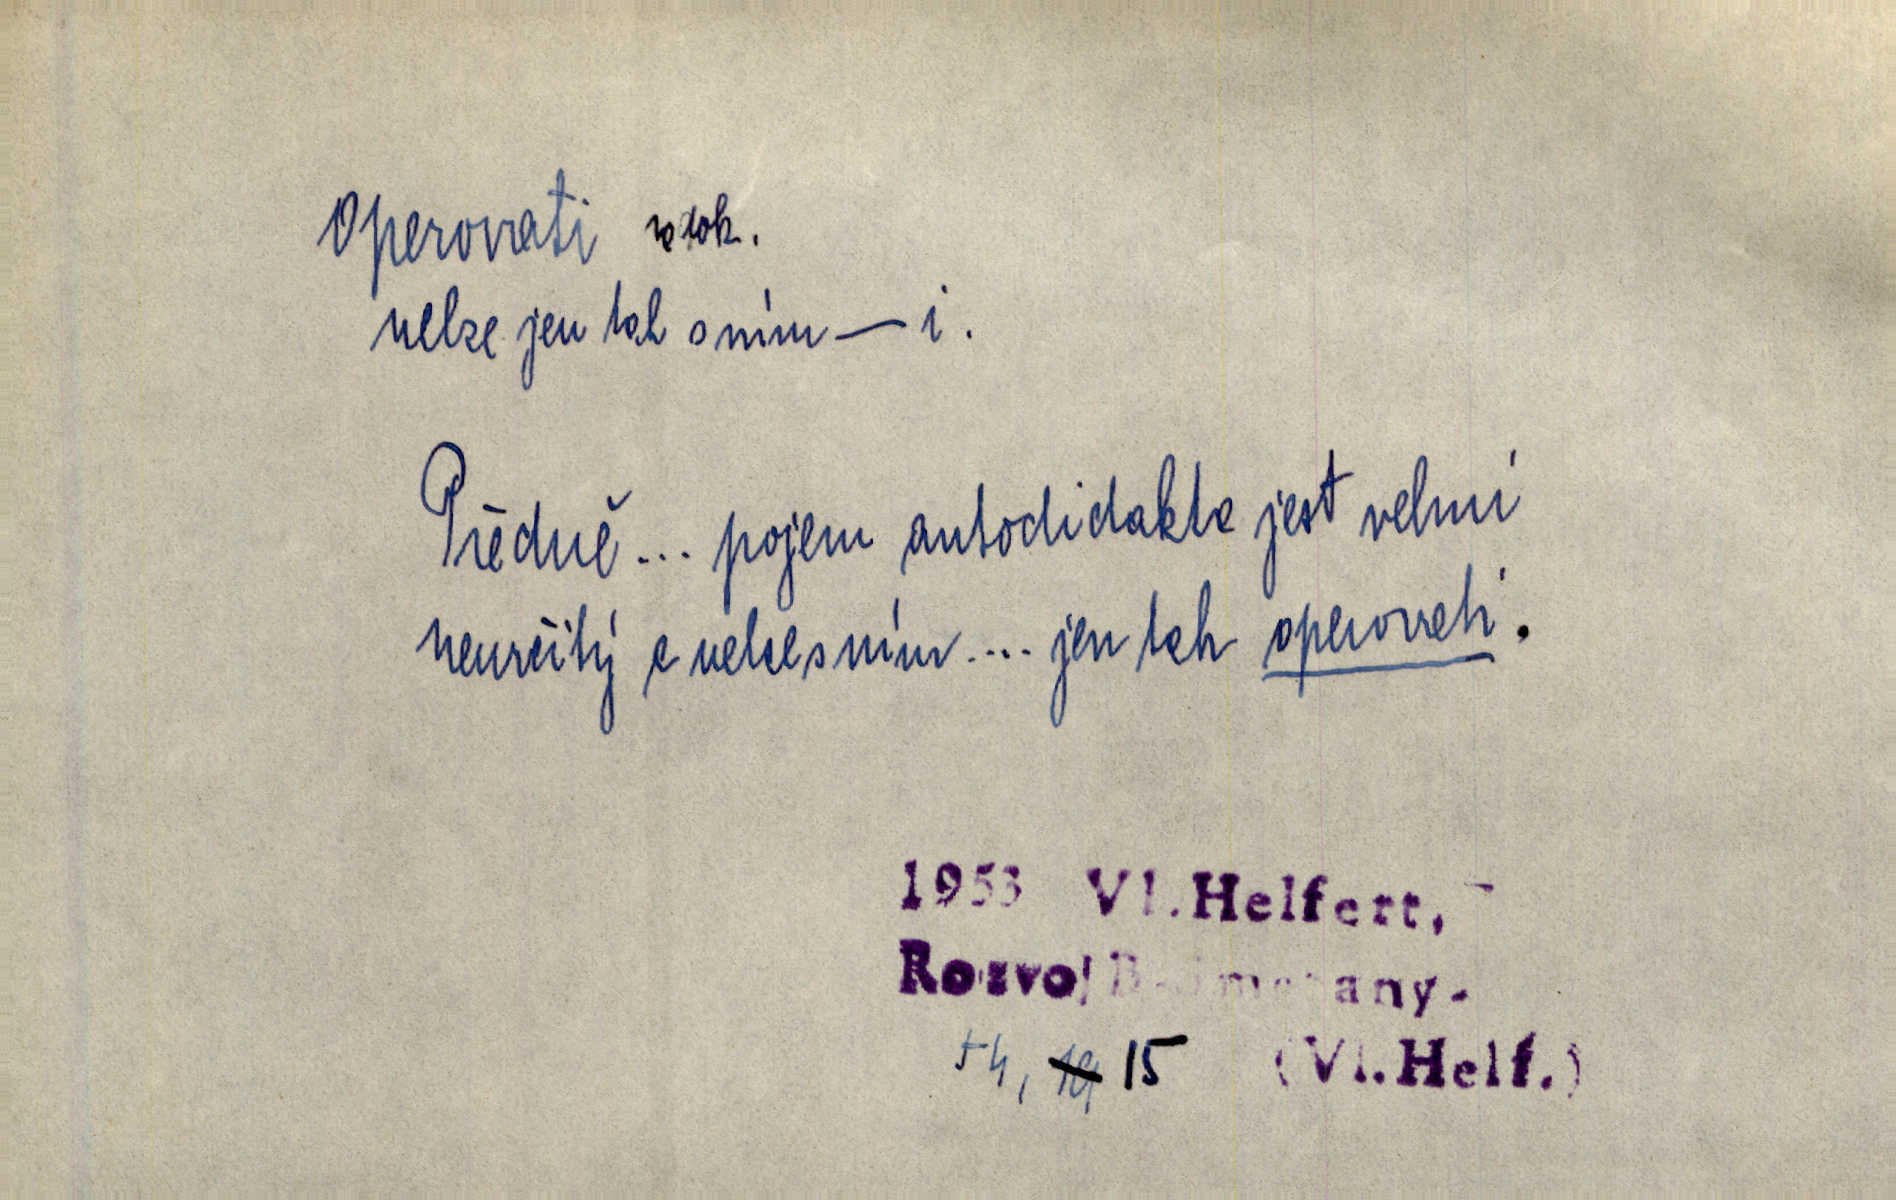 Operovati nedok.
nelze jen tak s ním — i.
Předně... pojem autodidakta jest velmi
neurčitý a nelze s ním.... jen tak operovati.
1953 Vl. Helfert,
Rozvoj
54, 15 (Vl. Helf.)